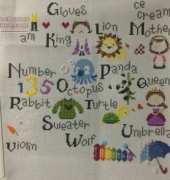 Gloves ice
cream
am King Lion Mothe
Number Panda
135 Octopus Queen
Rabbit Turtle
Sweater Umbrella
Violin Wolf